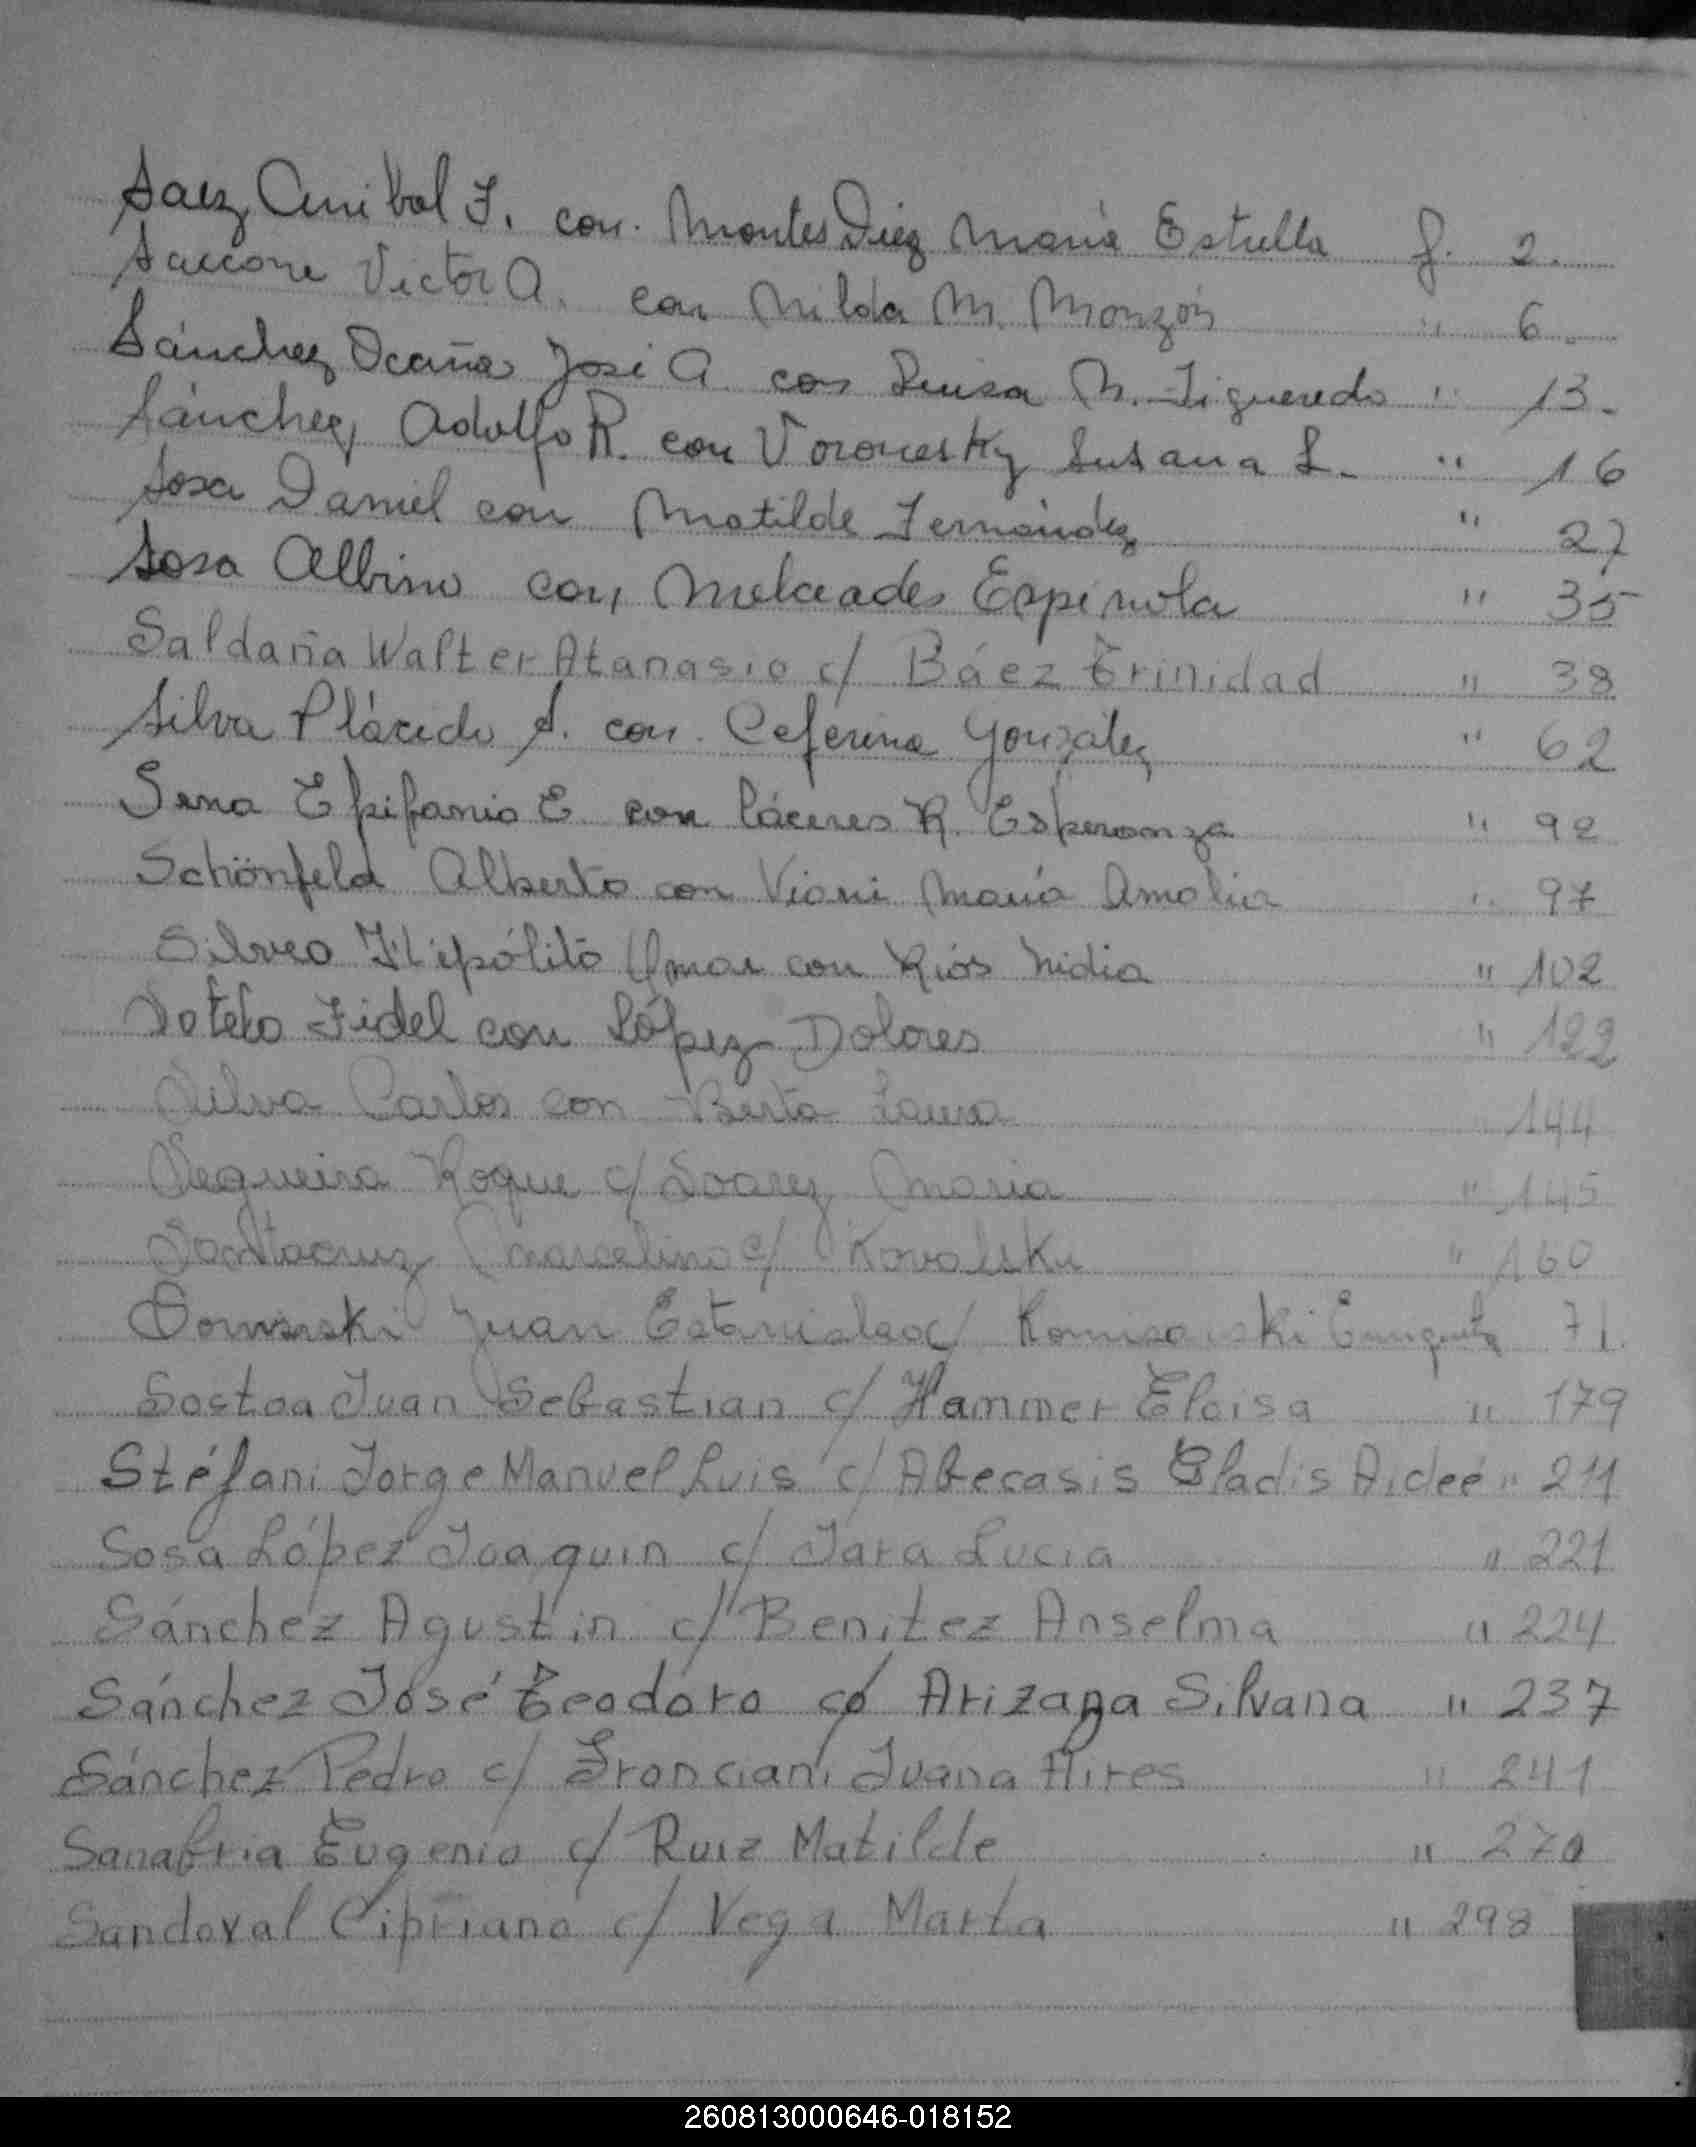 Saez Anibal F. con. Montes Diez María Estrella f. 2.
Saccone Victor A. con Nilda M. Monzón " 6.
Sánchez Ocaña José A. con Luisa M. Figueredo " 13.
Sánchez, Adolfo R. con Voronesky Susana L. " 16
Sosa Daniel con Matilde Fernández " 27
Sosa Albino con, Melciades Espínola " 35
Saldaña Walter Atanasio c/ Báez Trinidad " 38
Silva Plácido S. con. Ceferina González " 62
Sena Epifanio E. con Cáceres R. Esperanza " 92
Schönfeld Alberto con Viani María Amalia " 97
Silveo Hipólito Omar con Ríos Nidia " 102
Sotelo Fidel con López Dolores " 122
Silva Carlos con Berta Laura 144
Segueira Roque c/ Soarez Maria " 145
Santacruz Marcelino c/ Kovalsku " 160
Juan Estanislao c/ 71.
Sostoa Juan Sebastian c/ Hammer Eloisa " 179
Stéfani Jorge Manuel Luis c/ Abecasis Gladis Aideé " 211
Sosa López Joaquin c/ Jara Lucia " 221
Sánchez Agustín c/ Benitez Anselma " 224
Sánchez José Teodoro c/ Arizaga Silvana " 237
Sánchez Pedro c/ Fronciani Juana Aires " 241
Sanabria Eugenio c/ Ruiz Matilde " 270
Sandoval Cipriano c/ Vega Marta " 298
260813000646-018152